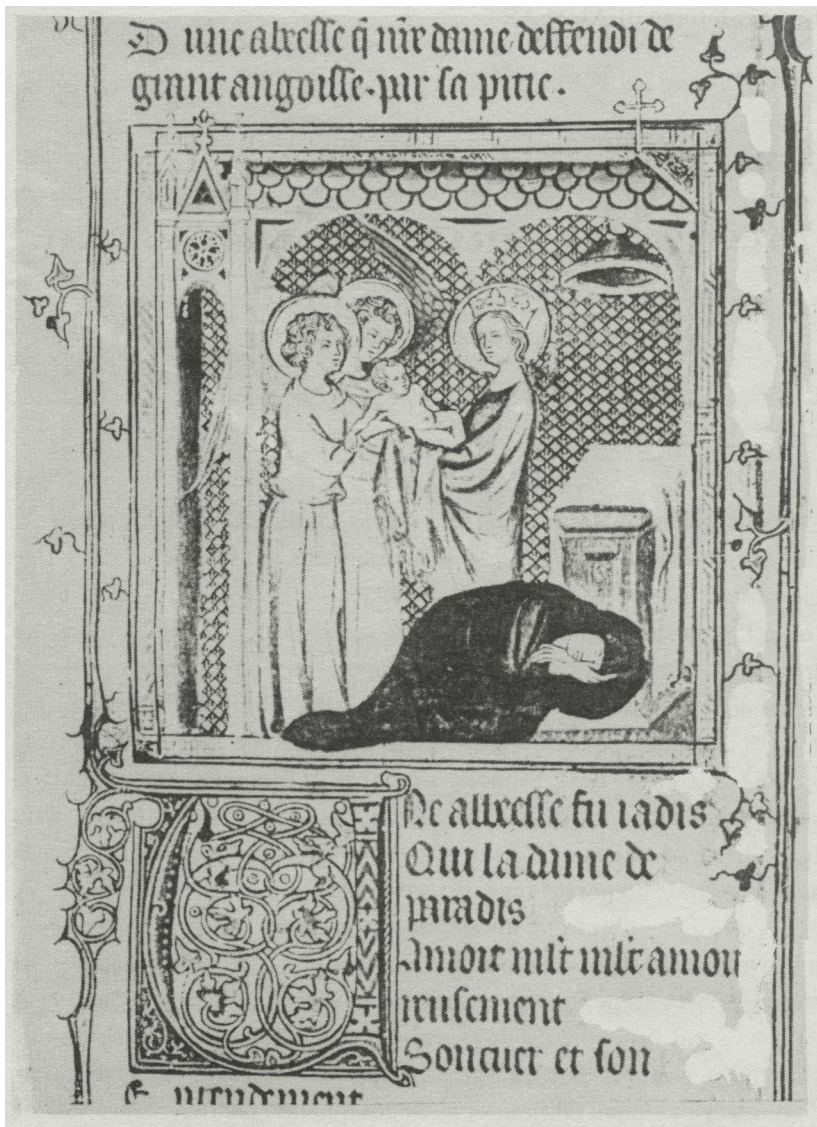 D une abeesse q̄ nr̄e dame deffendi de
grant angoisse. par sa pitie.
Une abbeesse fu iadis
Qui la dame de
paradis
Amoit ml̄t ml̄t amou
reusement
Son cuer et son
entendement